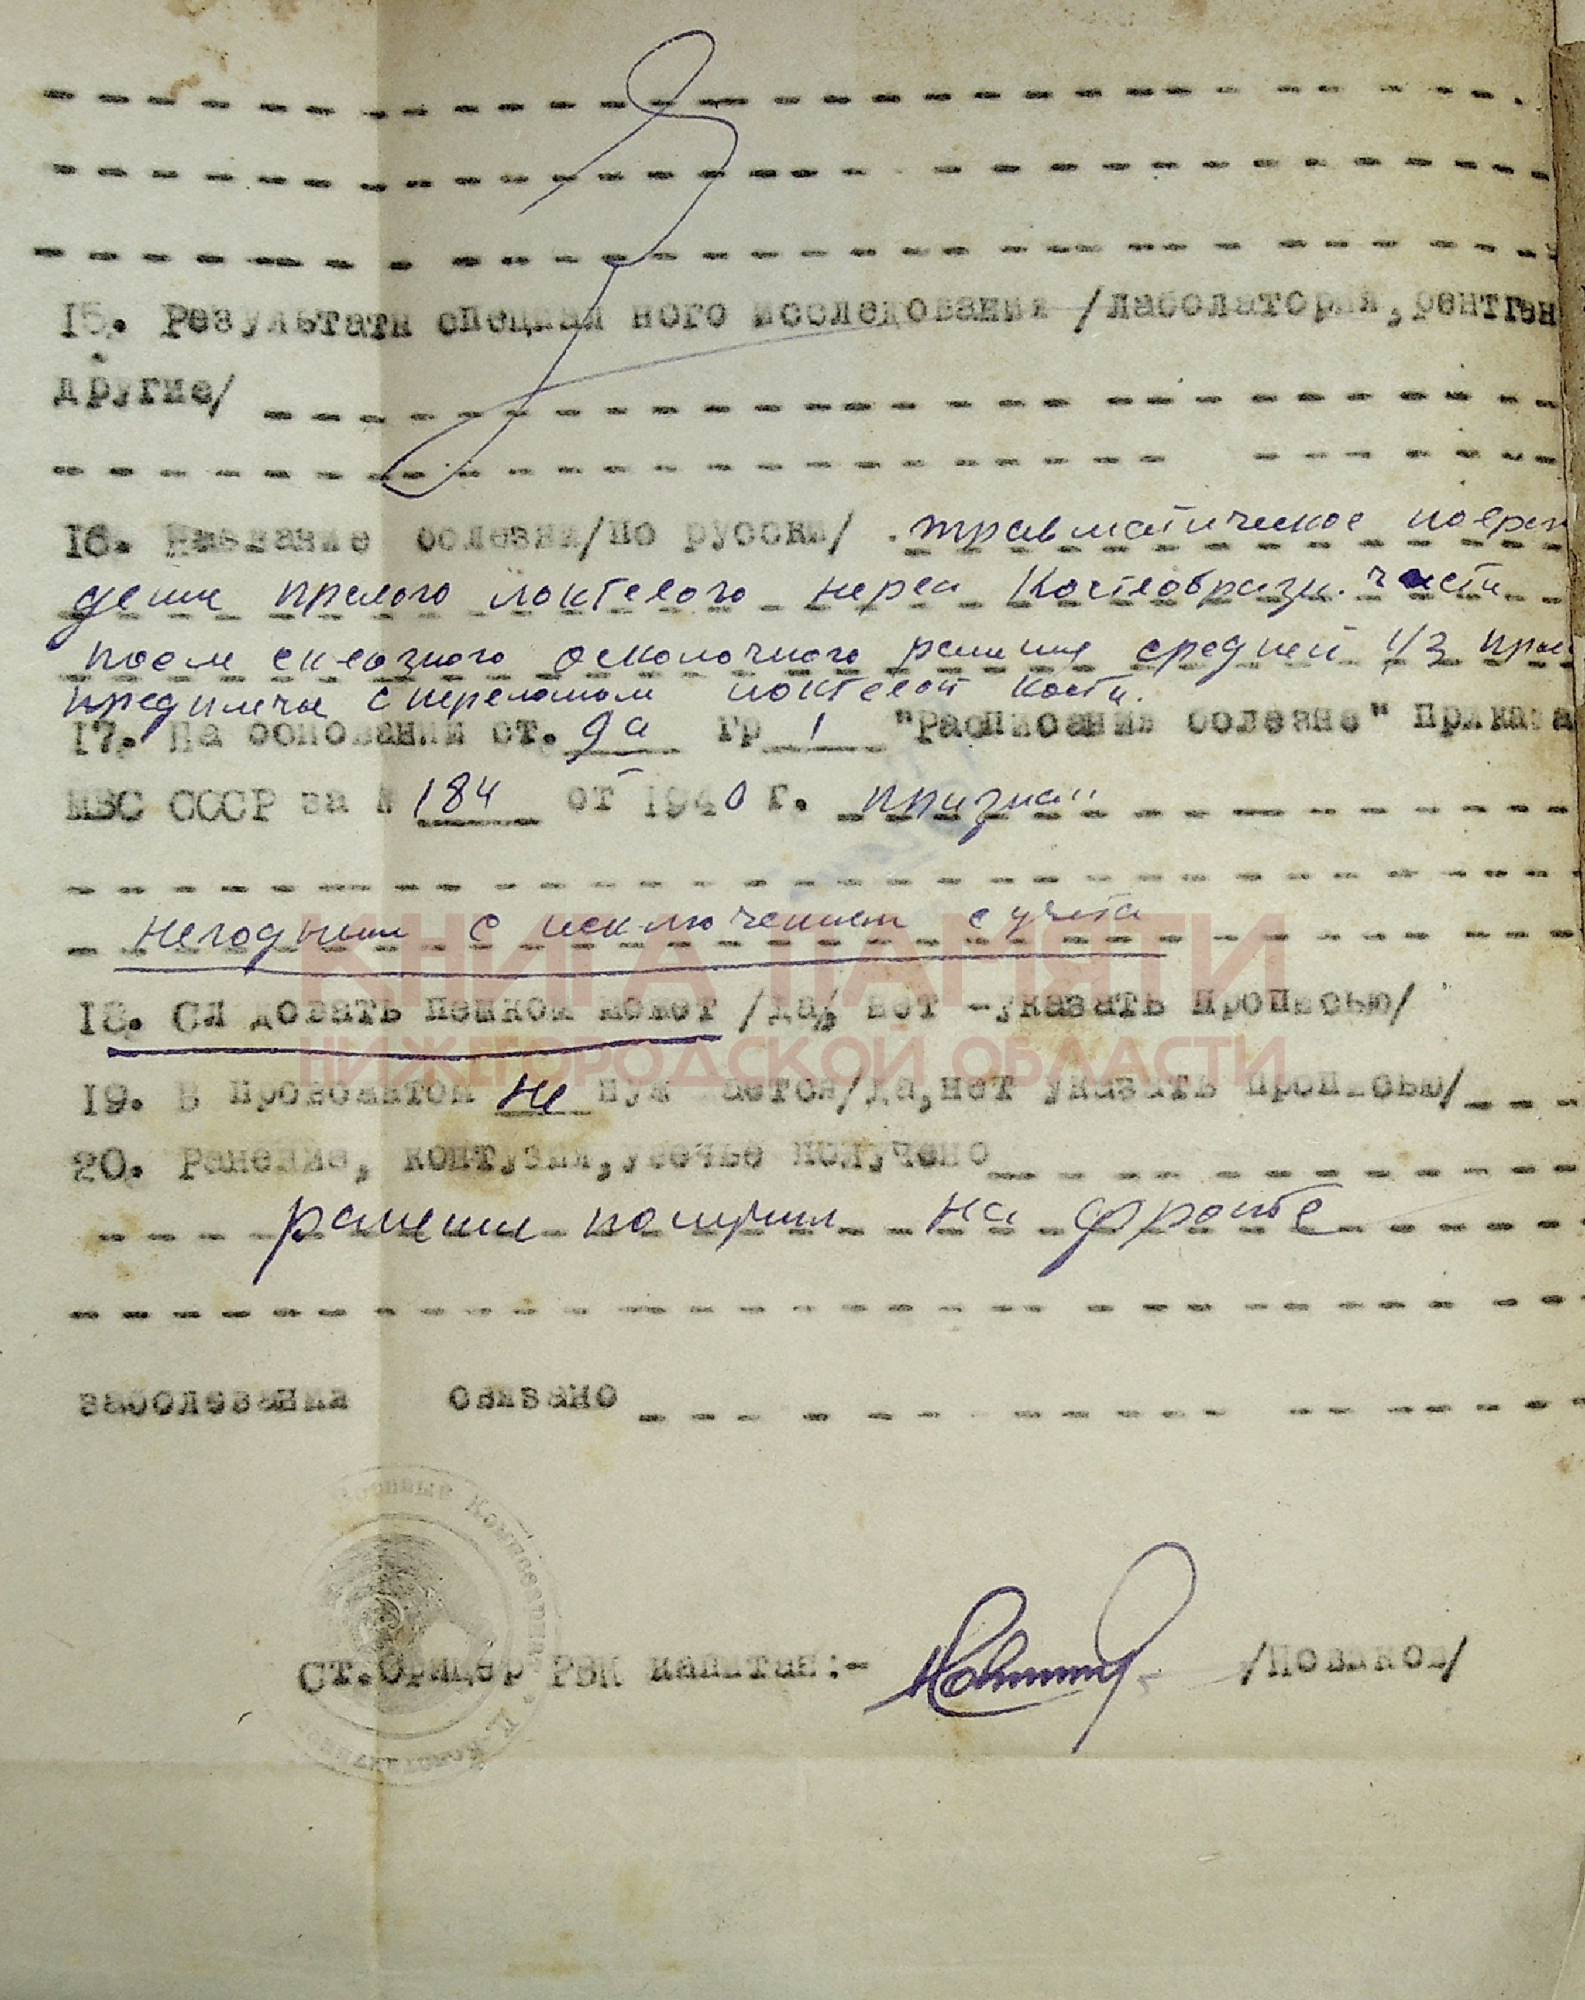 15. Результати специал ного исследования /лаболатория, рентген
другие/
16. Название болезни/по русски/ травматическое повреж
дение правого локтевого нерва Когтеобразн. кисти
после сквозного осколочного ранения средней 1/3 прав
предплечья с переломом локтевой кости.
17. На основании ст. 9а гр 1 "Расписания болезне" приказа
МВС СССР за № 184 от 1940 г. признан
негодным с исключением с учёта
КНИГА ПАМЯТИ
18. Сл довать пешком может /да, нет -указать прописью/
НИЖЕГОРОДСКОЙ ОБЛАСТИ
19. В провожатом не нуж ается/да,нет указать прописью/
20. Ранение, контузия, увечье получено
ранение получил на фронте
заболевания связано
Ст.Офицер РВК капитан:- /Новиков/